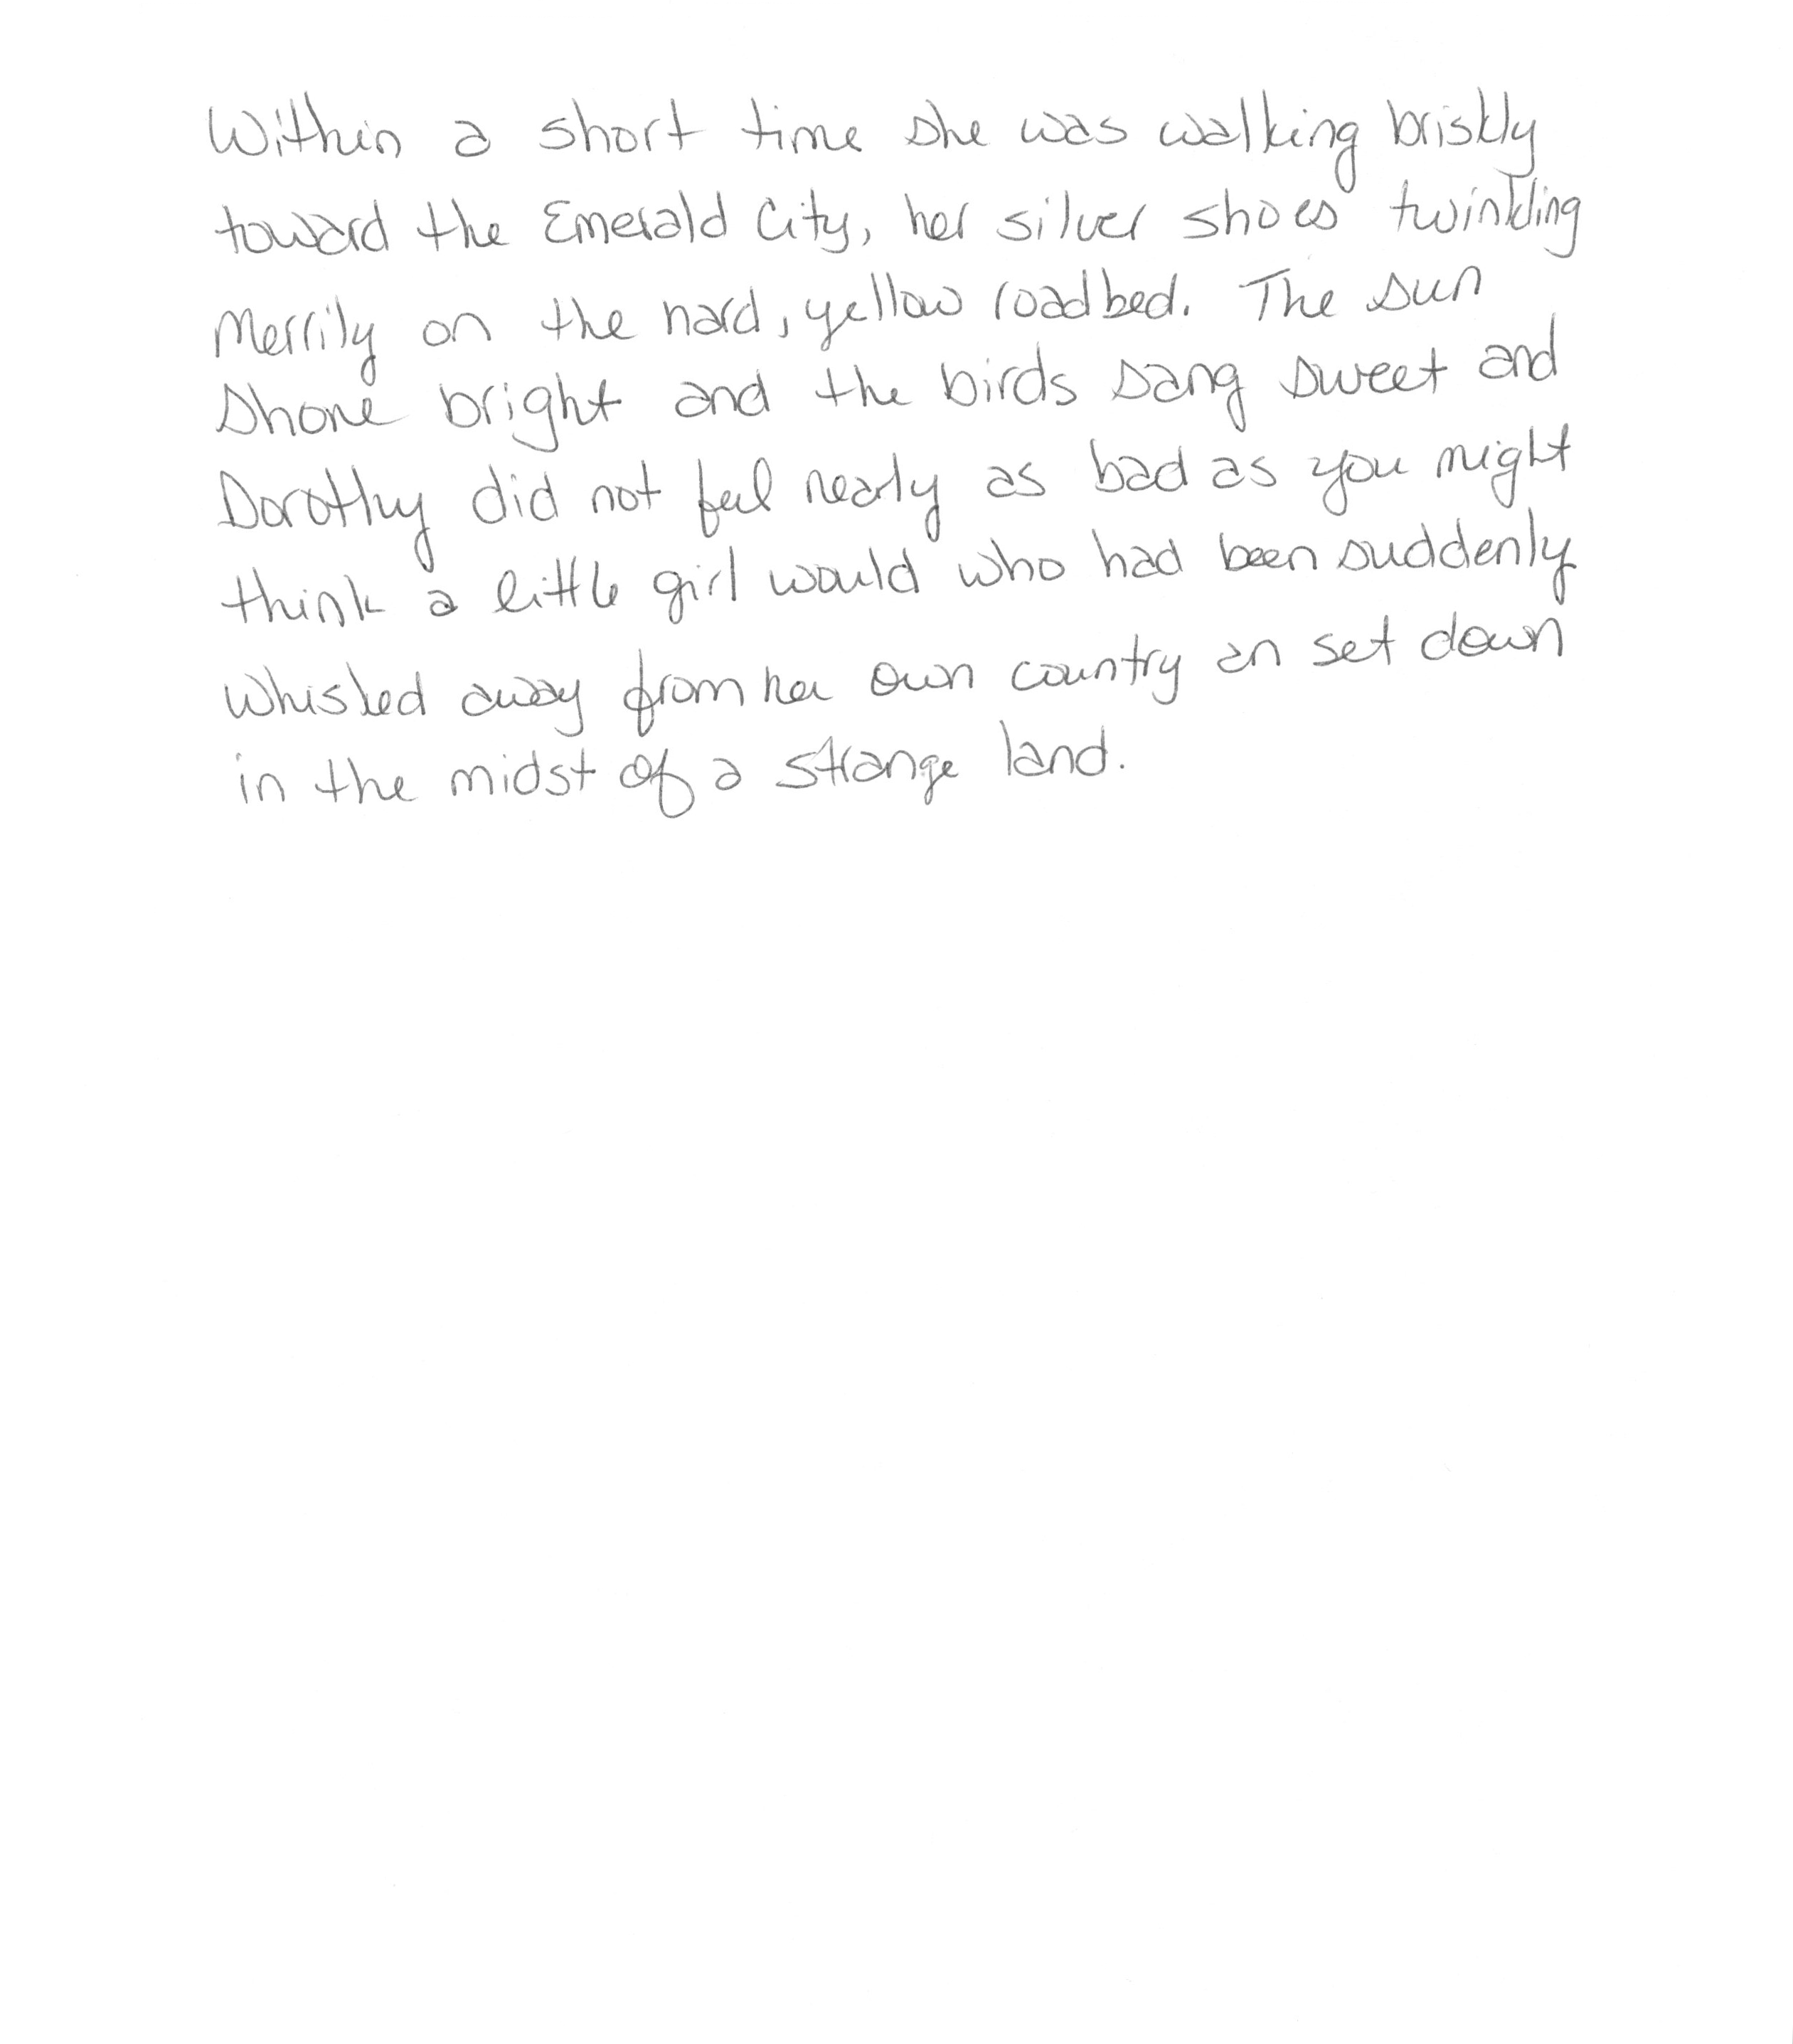 Within a short time she was walking briskly
toward the Emerald City, her silver shoes twinkling
merrily on the hard, yellow roadbed. The sun
shone bright and the birds sang sweet and
Dorothy did not feel nearly as bad as you might
think a little girl would who had been suddenly
whisked away from her own country an set down
in the midst of a strange land.